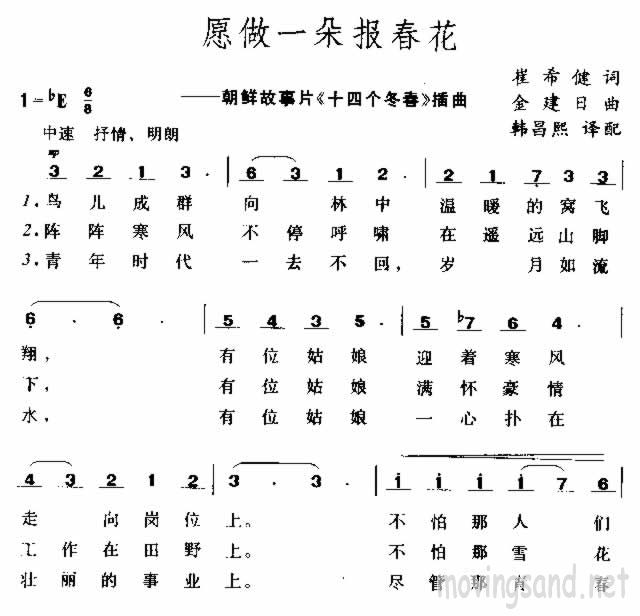 愿做一朵报春花
崔希健 词
1=♭E 6/8 ——朝鲜故事片《十四个冬春》插曲 金建日 曲
中速 抒情、明朗 韩昌熙 译配
mp
3 2 1 3 · 6 3 1 2 · 2 1 7 3 3
1.鸟儿成群 向林中 温暖的窝飞
2.阵阵寒风 不停呼啸 在遥远山脚
3.青年时代 一去不回, 岁月如流
6 · 6 · 5 4 3 5 · 5 ♭7 6 4 ·
翔, 有位姑娘 迎着寒风
下, 有位姑娘 满怀豪情
水, 有位姑娘 一心扑在
4 3 2 1 2 3 · 3 · i i i i 7 6
走向岗位 上。 不怕那人们
工作在田野 上。 不怕那雪花
壮丽的事业 上。 尽管那有春
movingsand.net